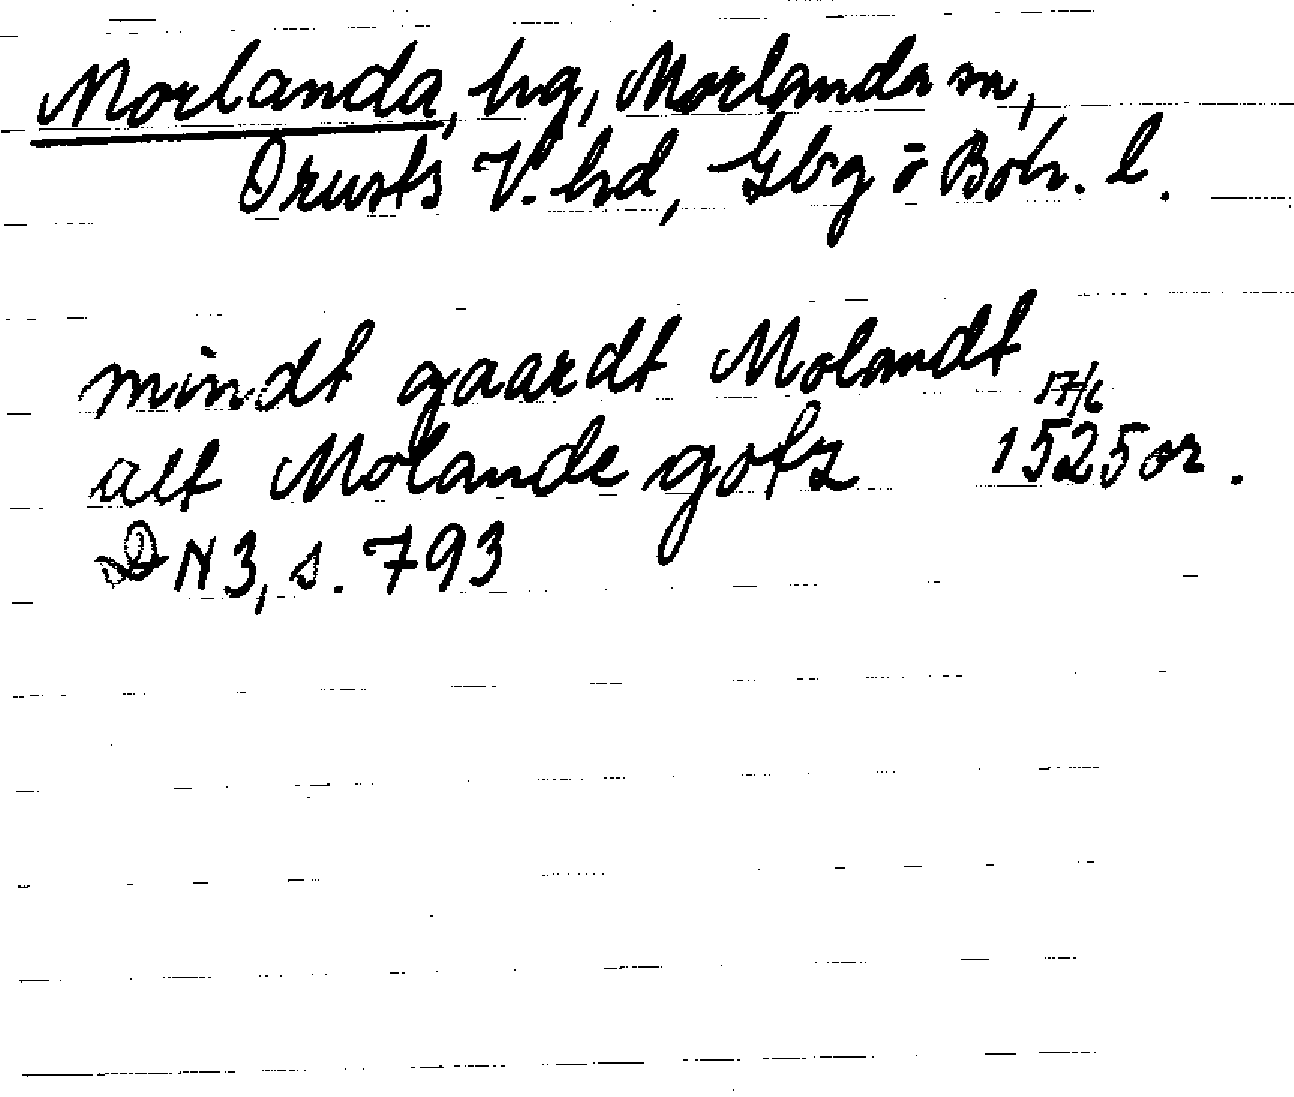 Morlanda, hg, Morlanda sn,
Orusts V. hd, Gbg o Boh. l.
mindt gaardt Molandt
alt Molande gotz 17/6 1525 or.
DN 3, s. 793